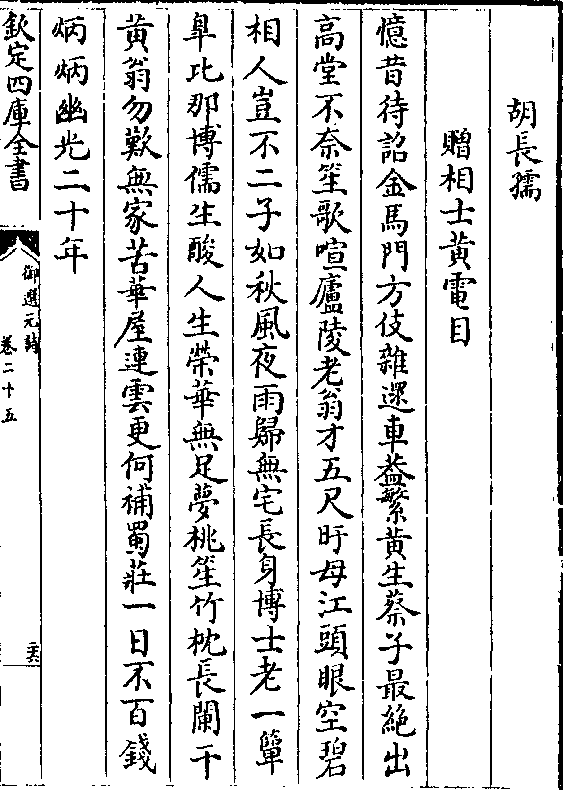 胡長孺
贈相士黃電目
憶昔待詔金馬門方伎雜遝車葢繁黃生蔡子最絶出
高堂不奈笙歌喧廬陵老翁才五尺盱母江頭眼空碧
相人豈不二子如秋風夜雨歸無宅長身博士老一簞
臯比那博儒生酸人生榮華無足夢桃笙竹枕長闌干
黃翁勿歎無家苦華屋連雲更何補蜀莊一日不百錢
炳炳幽光二十年
欽定四庫全書
御選元詩
卷二十五